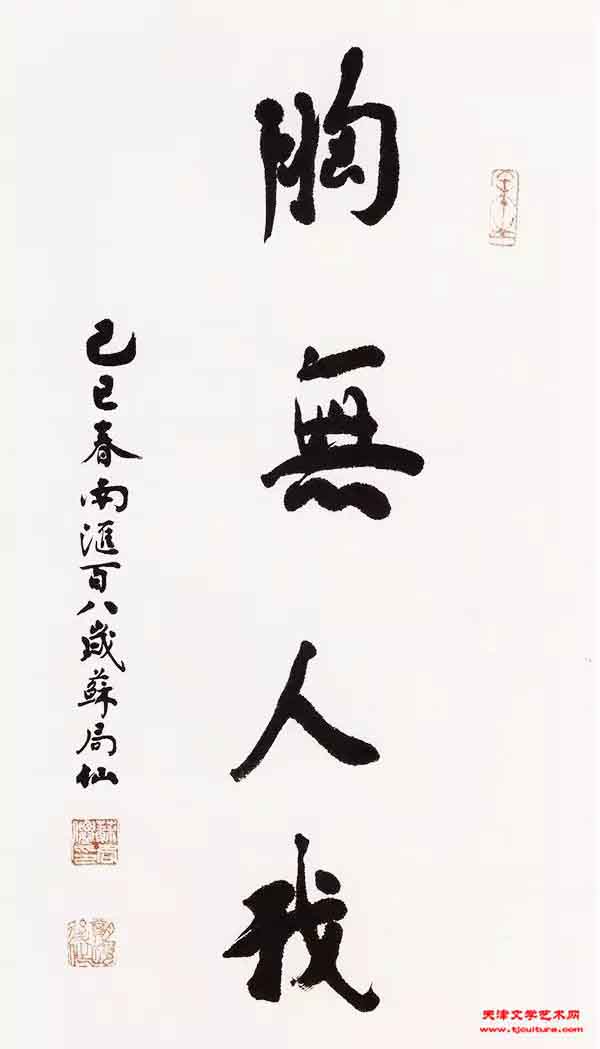 胸無人我
己巳春南滙百八歲蘇局仙
天津文学艺术网
www.tjculture.com